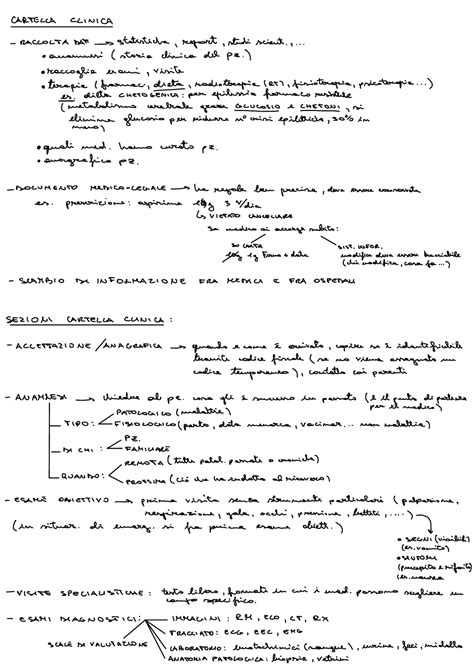 CARTELLA CLINICA
- RACCOLTA DATI → statistiche, report, studi scient., ...
• anamnesi (storia clinica del pz.)
• raccoglie esami, visite
• terapie (farmaci, dieta, radioterapia (RT), fisioterapia, psicoterapia...)
es. dieta CHETOGENICA: per epilessia farmaco resistente
(metabolismo cerebrale grazie GLUCOSIO e CHETONI, si
elimina glucosio per ridurre n° crisi epilettiche, 30% in
meno)
• quali med. hanno curato pz.
• anagrafica pz.
- DOCUMENTO MEDICO-LEGALE → ha regole ben precise, deve essere conservata
es. prescrizione: aspirina 3 v/dia
↳ VIETATO CANCELLARE
Se medico si accorge subito:
SU CARTA
SIST. INFOR.
1g Firma + data
modifica deve essere tracciabile
(chi modifica, cosa fa...)
- SCAMBIO DI INFORMAZIONE FRA MEDICI E FRA OSPEDALI
SEZIONI CARTELLA CLINICA:
- ACCETTAZIONE / ANAGRAFICA → quando e come è arrivato, capire se è identificabile
tramite codice fiscale (se no viene assegnato un
codice temporaneo), contatto coi parenti
- ANAMNESI → chiedere al pz. cosa gli è successo in passato (è il punto di partenza
per il medico)
TIPO:
PATOLOGICO (malattie)
FISIOLOGICO (parto, data menarca, vaccinaz... non malattie)
DI CHI:
PZ.
FAMILIARE
QUANDO:
REMOTA (tutte patol. passate o croniche)
PROSSIMA (ciò che ha condotto al ricovero)
- ESAME OBIETTIVO → prima visita senza strumenti particolari (palpazione,
respirazione, gola, occhi, pressione, battiti, ....)
(in situaz. di emerg. si fa prima esame obiett.)
• SEGNI (visibili)
(es. vomito)
• SINTOMI
(percepito e riferito)
(es. nausea
- VISITE SPECIALISTICHE: testo libero, formati in cui i med. possono scegliere un
campo specifico.
- ESAMI DIAGNOSTICI:
IMMAGINI: RM, ECO, CT, RX
TRACCIATO: ECG, EEG, EMG
SCALE DI VALUTAZIONE
LABORATORIO: ematochimici (sangue), urine, feci, midollo
ANATOMIA PATOLOGICA: biopsie, vetrini